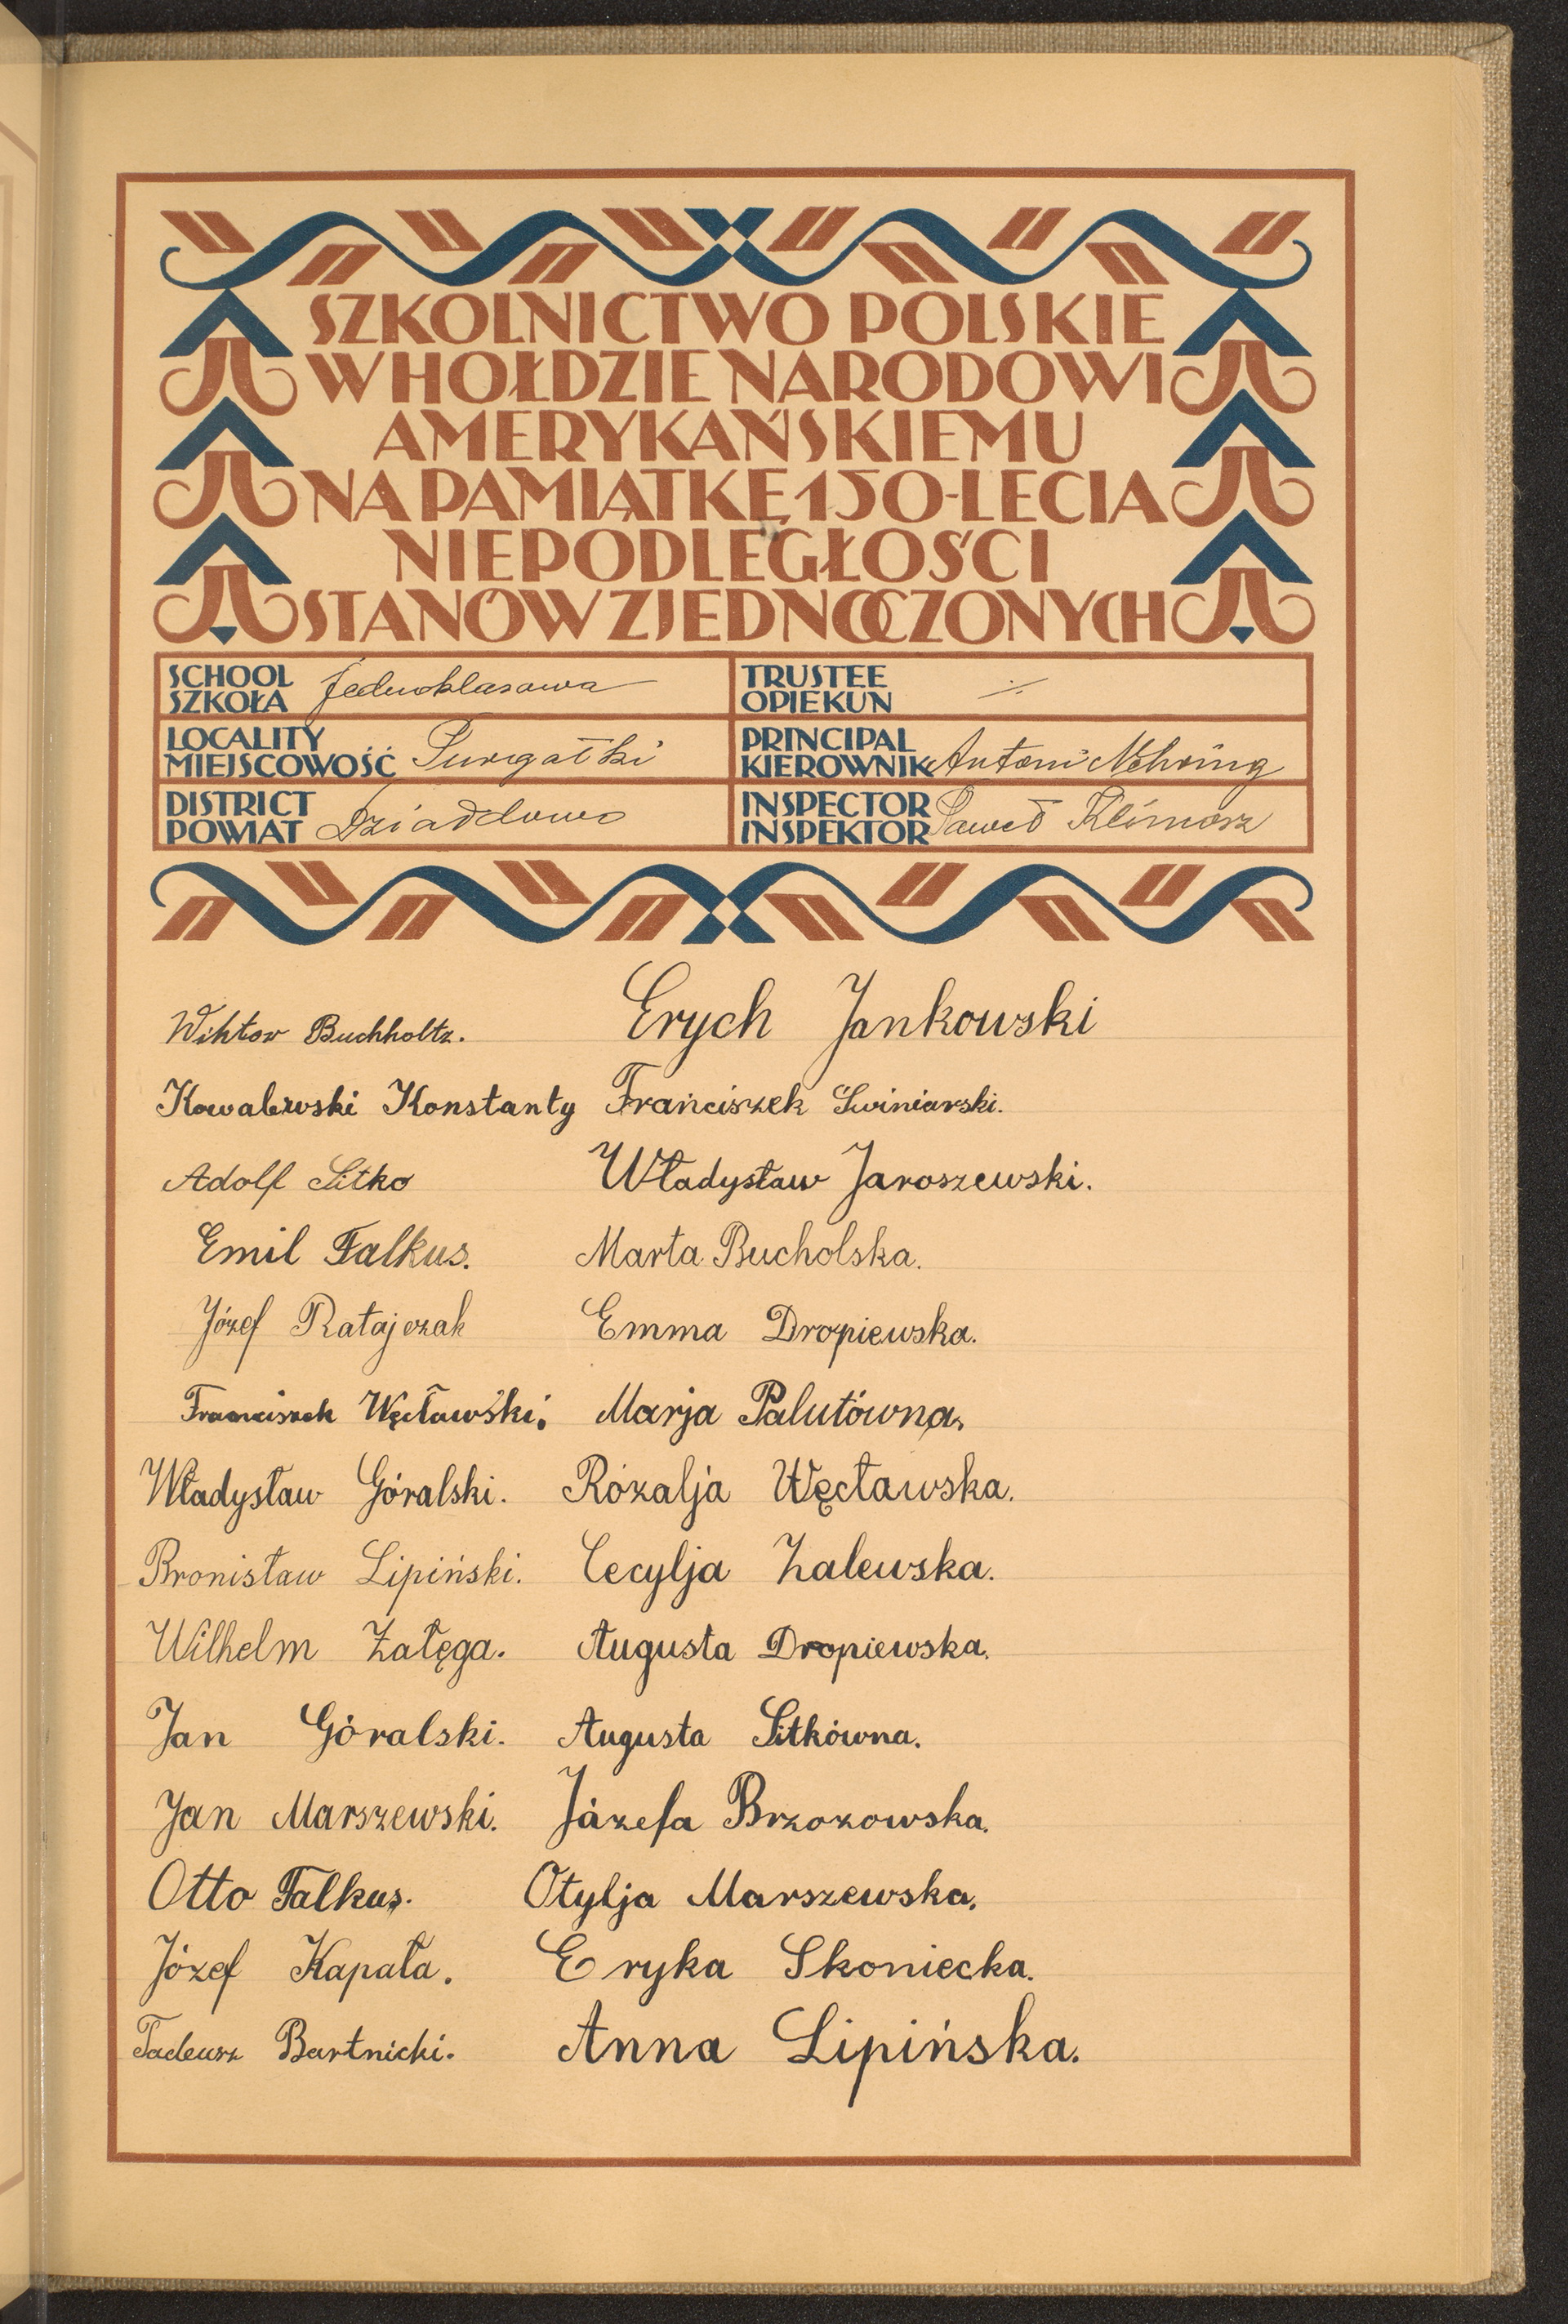 SZKOLNICTWO POLSKIE
W HOŁDZIE NARODOWI
AMERYKAŃSKIEMU
NA PAMIĄTKĘ 150-LECIA
NIEPODLEGŁOŚCI
STANÓW ZJEDNOCZONYCH
SCHOOL
SZKOŁA Jednoklasowa
TRUSTEE
OPIEKUN
LOCALITY
MIEJSCOWOŚĆ Purgałki
PRINCIPAL
KIEROWNIK Antoni Nehring
DISTRICT
POWIAT Działdowo
INSPECTOR
INSPEKTOR Paweł Klimosz
Wiktor Buchholtz. Erych Jankowski
Kowalewski Konstanty Franciszek Świniarski.
Adolf Sitko Władysław Jaroszewski.
Emil Falkus. Marta Bucholska.
Józef Ratajczak Emma Dropiewska.
Franciszek Węcławski. Marja Palutówna.
Władysław Góralski. Rózalja Węcławska.
Bronisław Lipiński. Cecylja Zalewska.
Wilhelm Załęga. Augusta Dropiewska.
Jan Góralski. Augusta Sitkówna.
Jan Marszewski. Józefa Brzozowska.
Otto Falkus. Otylja Marszewska.
Józef Kapała. Eryka Skoniecka.
Tadeusz Bartnicki. Anna Lipińska.